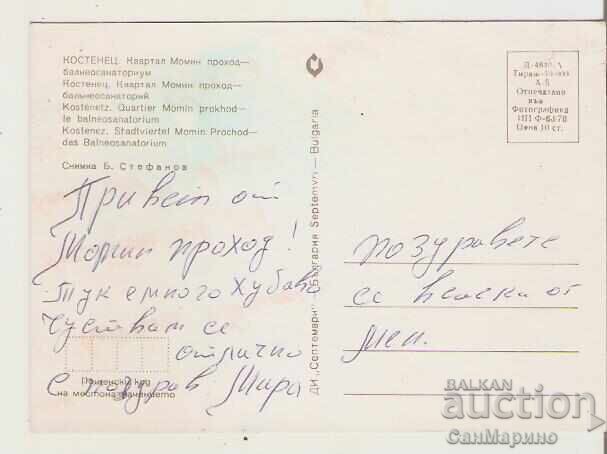 КОСТЕНЕЦ. Квартал Момин проход—
балнеосанаториум
Костенец. Квартал Момин проход—
бальнеосанаторий
Kostenetz. Quartier Momin prokhod—
le balneosanatorium
Kostenez. Stadtviertel Momin Prochod—
des Balneosanatorium
Снимка Б. Стефанов
Привет от
Момин проход!
Тук е много хубаво
Чуствам се
отлично
С поздрав Мира
Пощенски код
на местоназначението
ДИ „Септември" — България Septemvri — Bulgaria
Тираж
А 5
Отпечатано
във
Фотографика
ПП Ф-6J76
Цена 10 ст.
поздравете
се всички от
мен.
BALKAN
auction
СанМарино